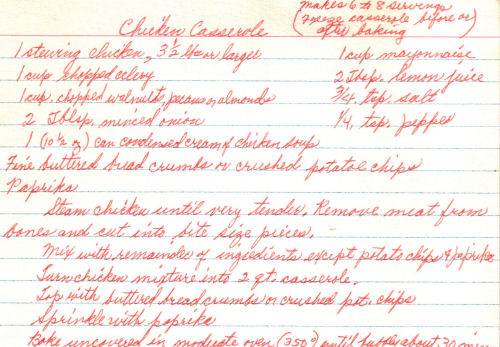 makes 6 to 8 servings
Chicken Casserole (Freeze casserole before or)
after baking
1 stewing chicken, 3 1/2 lbs or larger 1 cup mayonnaise
1 cup chopped celery 2 Tbsp. lemon juice
1 cup chopped walnuts, pecans or almonds 3/4 tsp salt
2 Tblsp. minced onion 1/4 tsp. pepper
1 (10 1/2 oz) can condensed cream of chicken soup
Fine buttered bread crumbs or crushed potatoe chips
Paprika
Steam chicken until very tender. Remove meat from
bones and cut into bite size pieces.
Mix with remainder of ingredients except potato chips & paprika
Turn chicken mixture into 2 qt. casserole.
Top with buttered bread crumbs or crushed pot. chips
Sprinkle with paprika
Bake uncovered in moderate oven (350°) until bubbly about 30 min